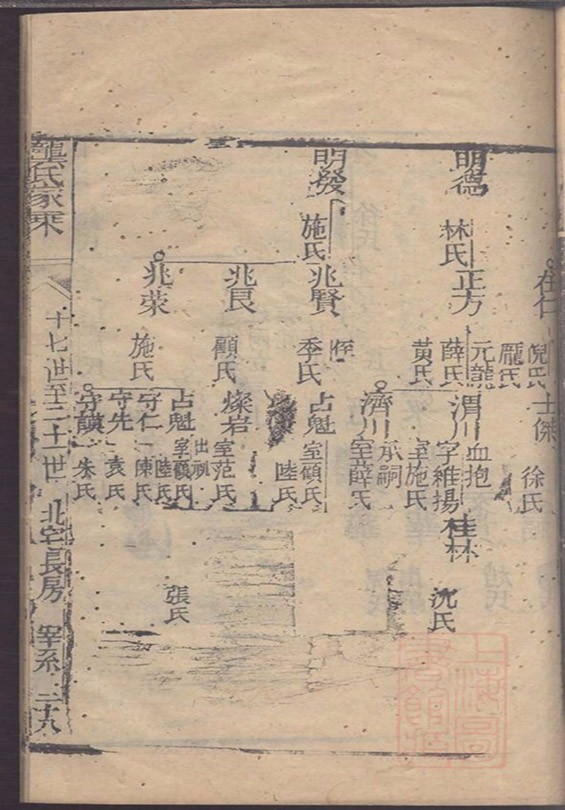 在仁
倪氏
龎氏
士傑
徐氏
明德
林氏
正方
元龍
薛氏
黃氏
渭川
血抱
字維揚
室施氏
桂林
沈氏
濟川
承嗣
室薛氏
明發
施氏
兆賢
侄
季氏
占魁
室顧氏
陸氏
兆艮
顧氏
燦岩
室范氏
兆荣
施氏
占魁
出嗣
室顧氏
陸氏
守仁
陳氏
守先
袁氏
守謨
朱氏
張氏
龔氏家乘
十七世至二十一世
北宅長房
宰系
二十九